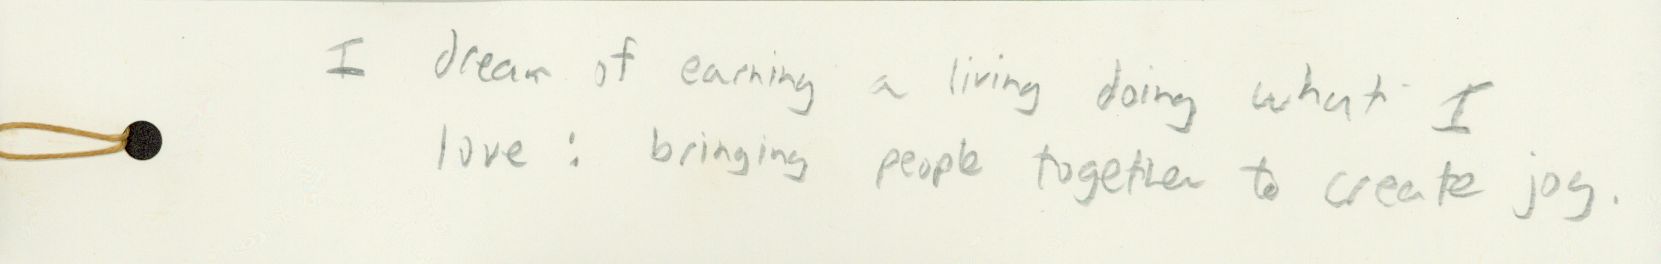 I dream of earning a living doing what I
love: bringing people together to create joy.